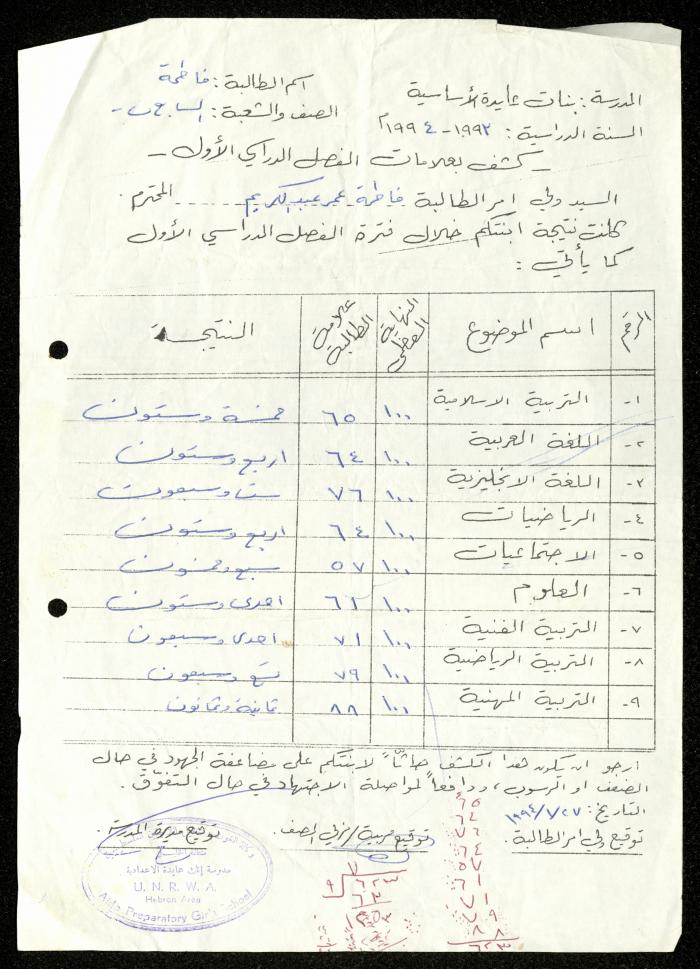 المدرسة: بنات عايدة الأساسية
اسم الطالبة: فاطمة
السنة الدراسية: ١٩٩٣-١٩٩٤م
الصف والشعبة: السابع ب
- كشف بعلامات الفصل الدراسي الأول -
السيد ولي امر الطالبة فاطمة عمر عبد الكريم المحترم.
كانت نتيجة ابنتكم خلال فترة الفصل الدراسي الأول
كما يأتي:
الرقم | اسم الموضوع | النهاية العظمى | علامة الطالبة | النتيجة
١- | التربية الاسلامية | ١٠٠ | ٦٥ | خمسة وستون
٢- | اللغة العربية | ١٠٠ | ٦٤ | اربع وستون
٣- | اللغة الانجليزية | ١٠٠ | ٧٦ | ست وسبعون
٤- | الرياضيات | ١٠٠ | ٦٤ | اربع وستون
٥- | الاجتماعيات | ١٠٠ | ٥٧ | سبع وخمسون
٦- | العلوم | ١٠٠ | ٦١ | احدى وستون
٧- | التربية الفنية | ١٠٠ | ٧١ | احدى وسبعون
٨- | التربية الرياضية | ١٠٠ | ٧٩ | تسع وسبعون
٩- | التربية المهنية | ١٠٠ | ٨٨ | ثمانية وثمانون
ارجو ان يكون هذا الكشف حاثاً لابنتكم على مضاعفة الجهود في حال
الضعف او الرسوب، ودافعاً لمواصلة الاجتهاد في حال التفوّق.
التاريخ: ١٩٩٤/١/٢٧
توقيع ولي امر الطالبة.
توقيع مربية/مربي الصف.
توقيع مديرة المدرسة.
٦٥
٦٤
٧٦
٦٤
٥٧
٦١
٧١
٧٩
٨٨
٦٢٣
٩
٦٢٣
٦٣
مدرسة إناث عايدة الاعدادية
U. N. R. W. A.
Hebron Area
Aida Preparatory Girl's School